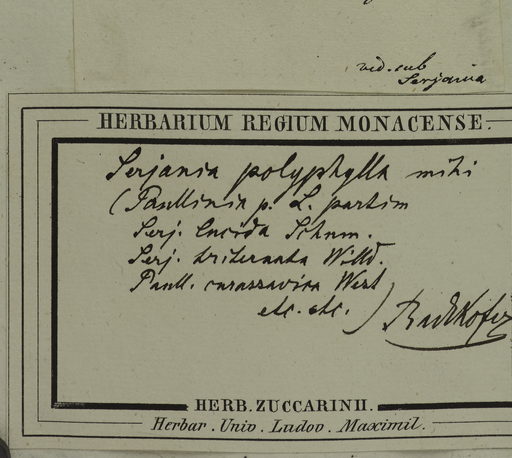 vid. sub
Serjania
HERBARIUM REGIUM MONACENSE.
Serjania polyphylla mihi
(Paullinia p. L. partim
Serj. lucida Schum.
Serj. triternata Willd.
Paull. curassavica West
etc. etc. ) Radlkofer
HERB. ZUCCARINII.
Herbar. Univ. Ludov. Maximil.